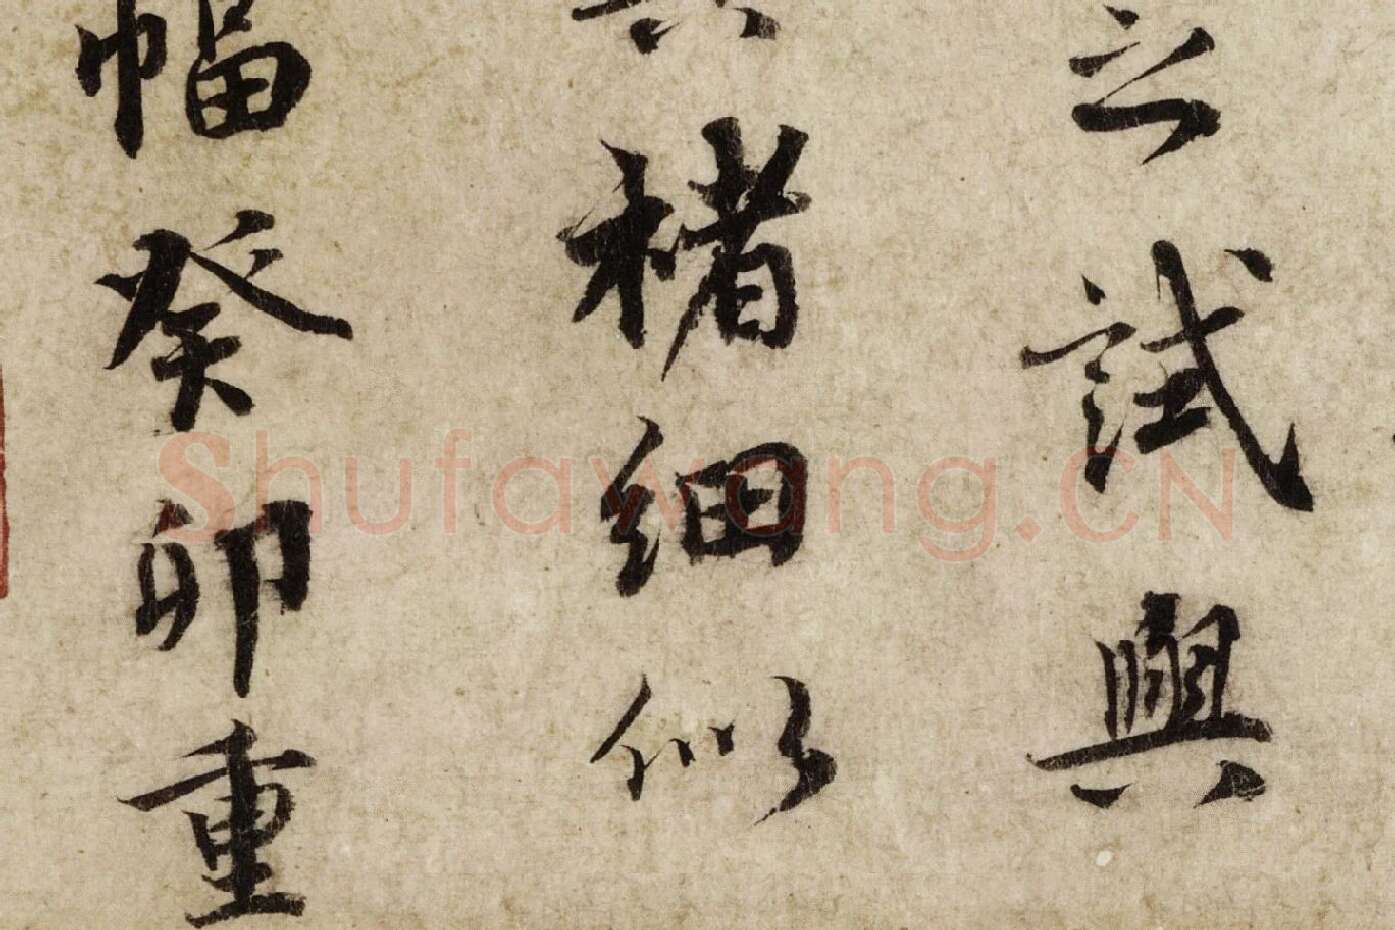 之試興
楮細似
幅癸卯重
Shufawang.CN